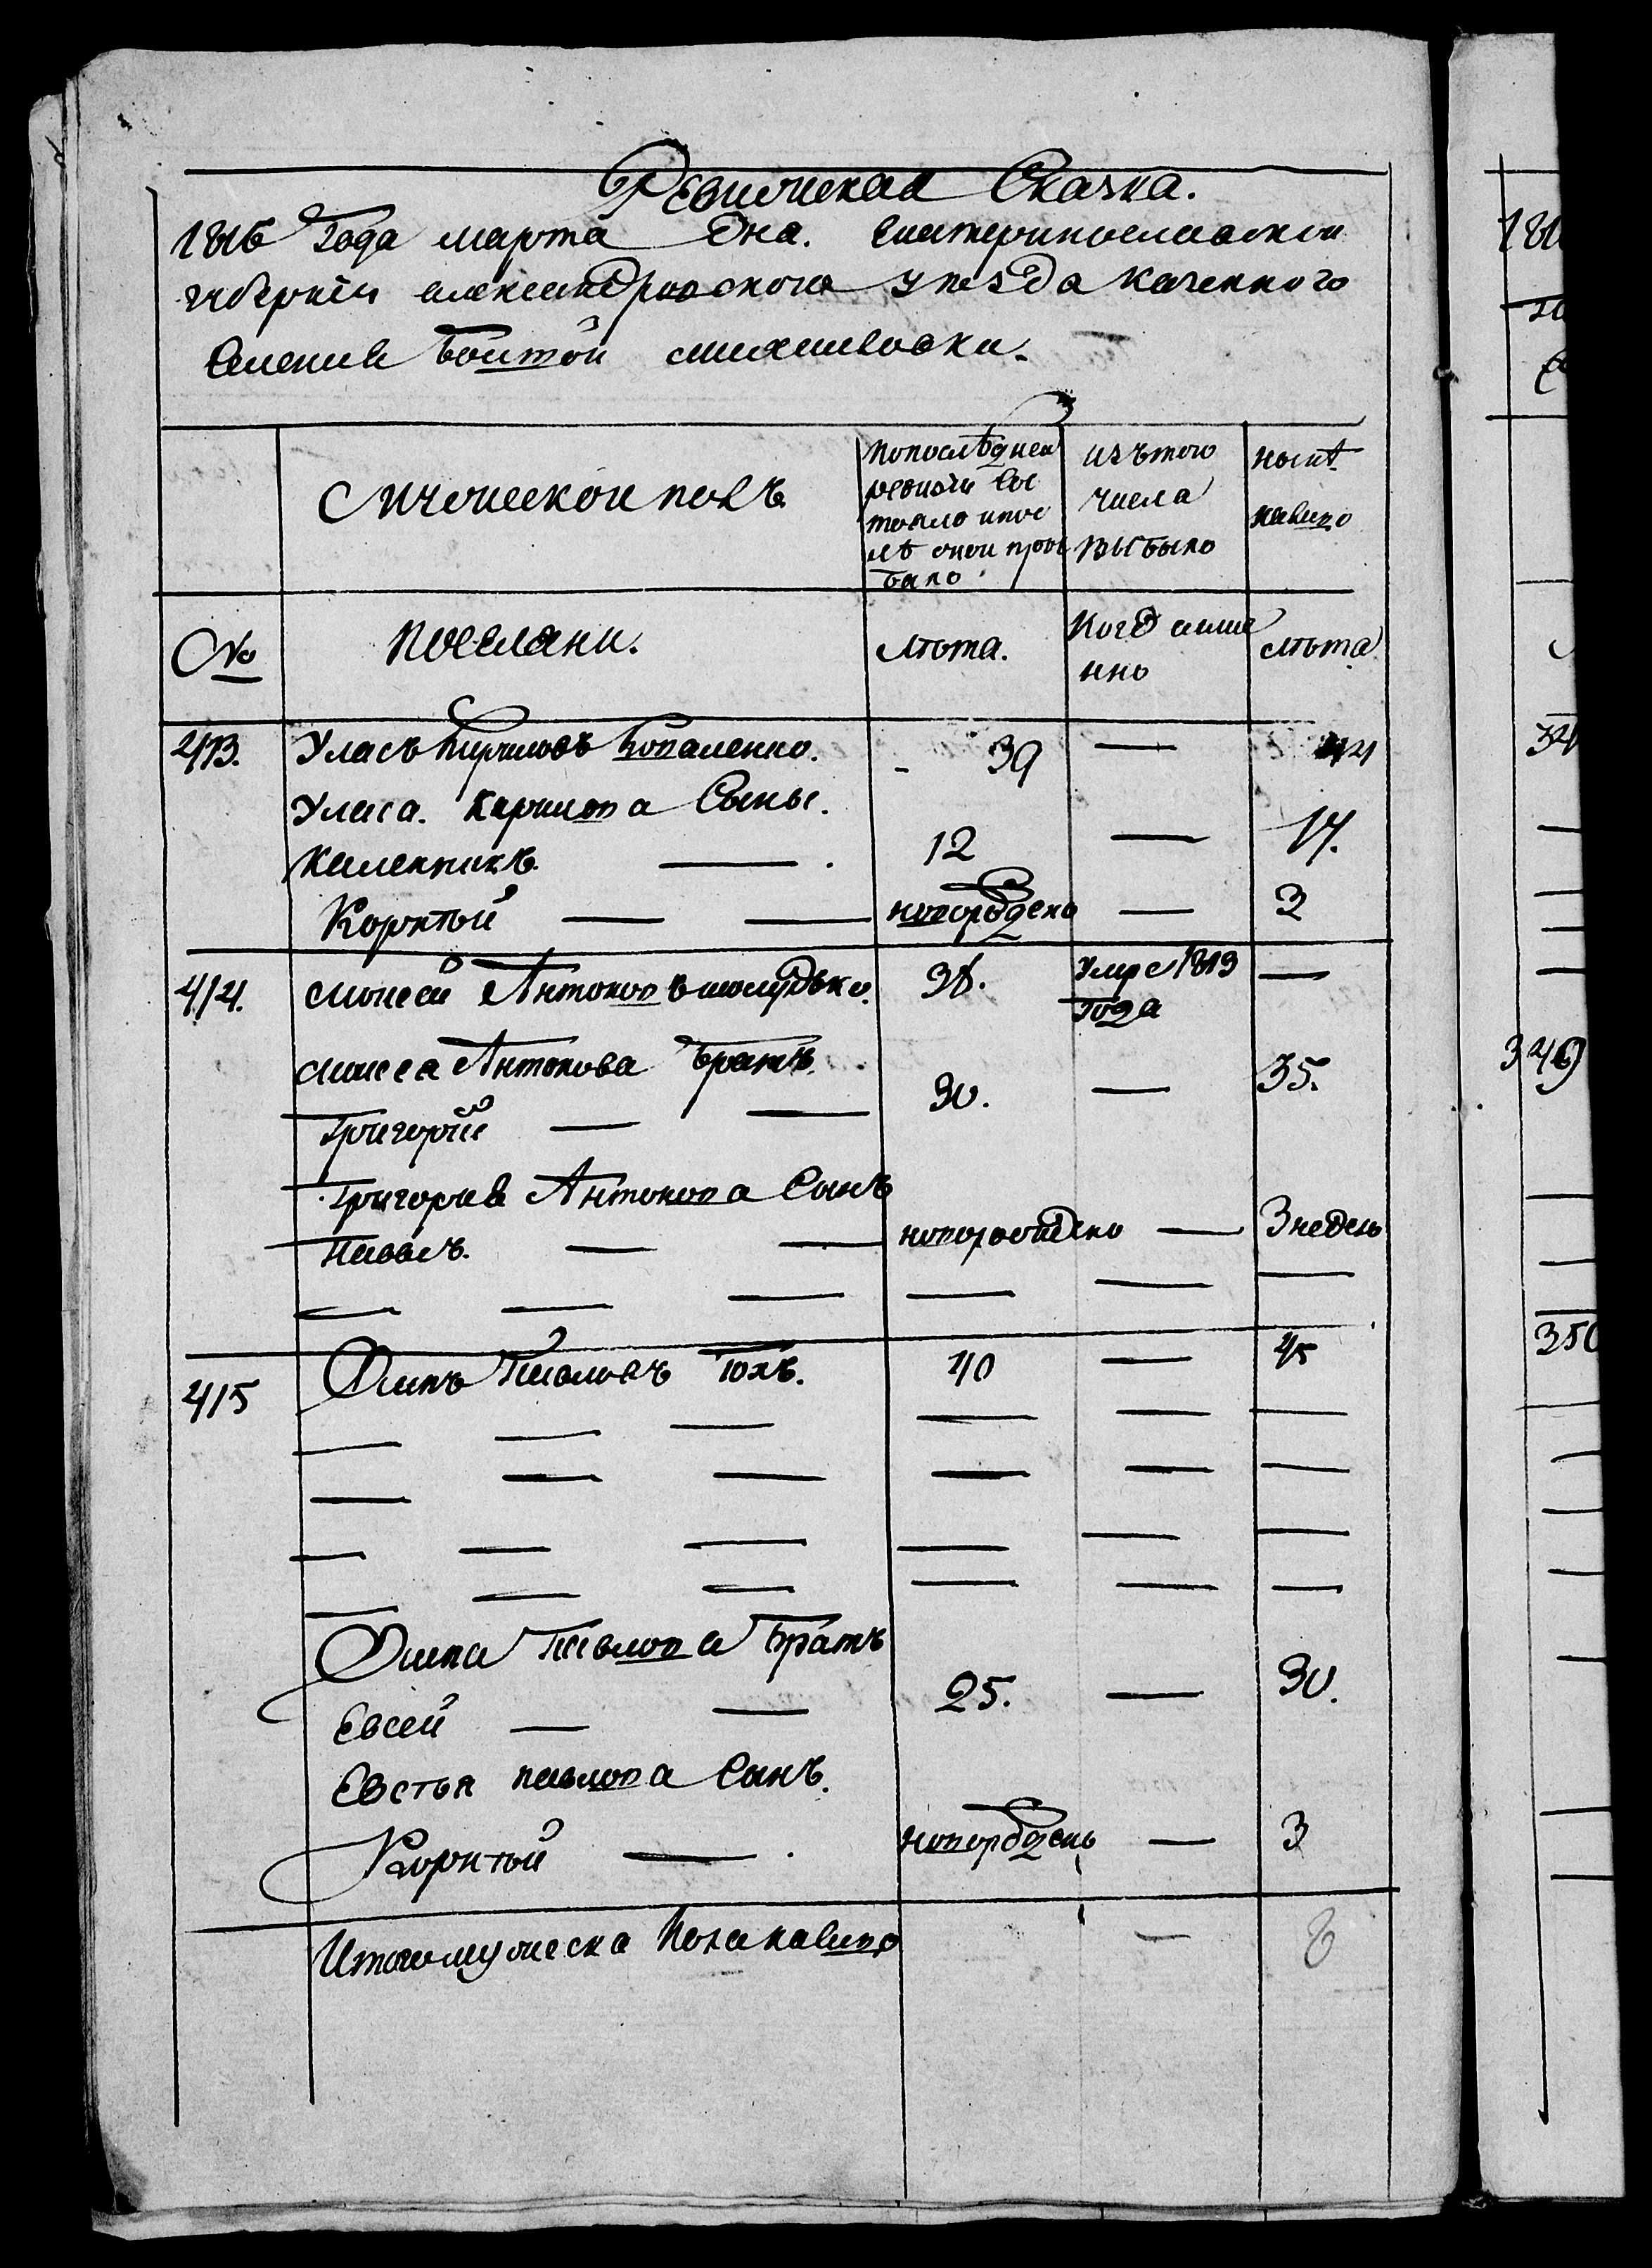 Ревижская Сказка.
1816 Года марта дня. Екатеринославской
губернiи александровского уѣзда казенного
Селенiя болтой михаиловки.
Мужеской полъ
по последней
ревизiи сос
тояло и пос
лѣ оной прои
было
изъ того
числа
выбыло
нынѣ
налицо
№
поселяни.
лѣта.
Когд имме
нно
лѣта
413.
Уласъ Кириловъ Коваленко.
39
44
Уласа. Кирилова Сыны.
Каленикъ
12
17.
Корнѣй
новорождено
3
414.
Моисей Антоновъ
36.
умре 1813
года
Моисея Антонова братъ
Григорiй
30.
35.
Григорiя Антонова Сынъ
Павелъ.
новорожденo
3 недель
415
Осипъ Павловъ Тохъ.
40
45
Осипа Павлова братъ
Евсей
25.
30.
Евстья павлова Сынъ.
Корнѣй
новорожденъ
3
Итого мужеска пола налицо
8
181
349
350